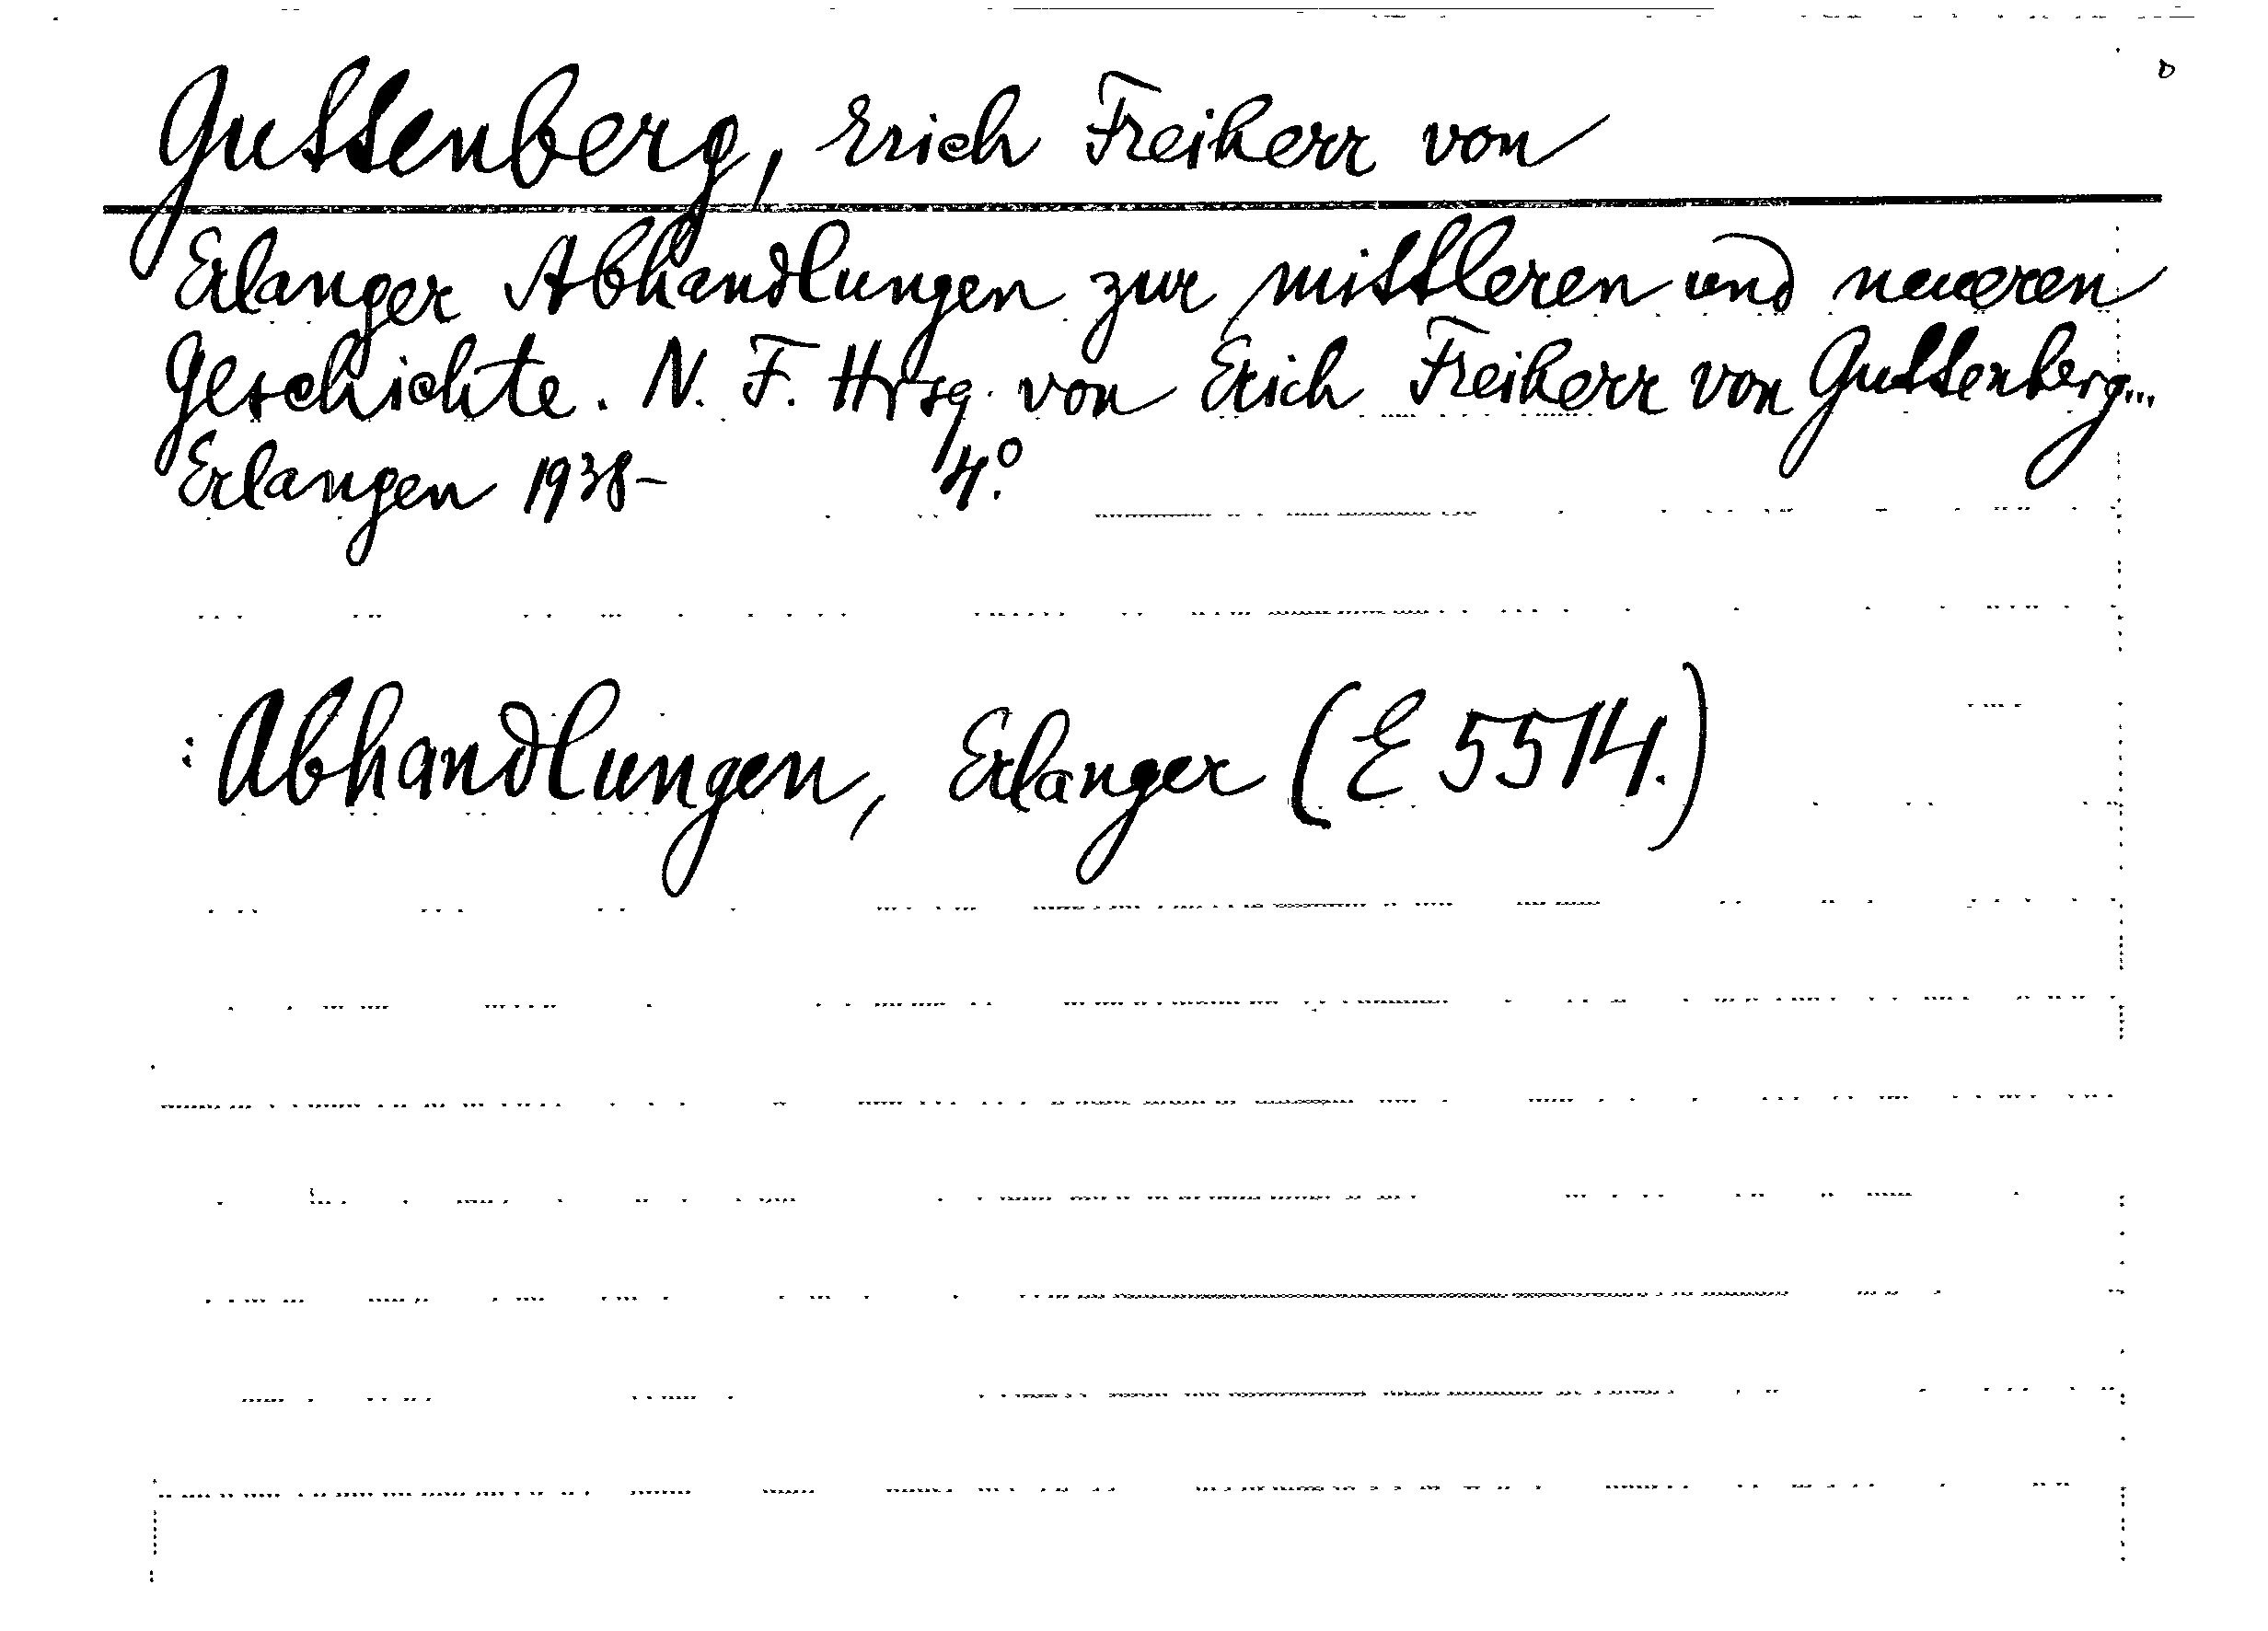 Guttenberg, Erich Freiherr von
Erlanger Abhandlungen zur mittleren und neueren
Geschichte. N. F. Hrsg. von Erich Freiherr von Guttenberg...
Erlangen 1938- 4°.
: Abhandlungen, Erlanger (E 5514.)